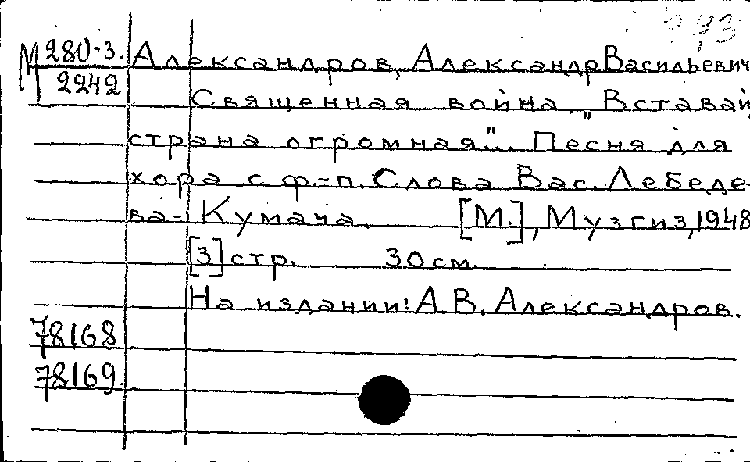 М 280-3. Александров, Александр Васильевич
2242
Священная война „Вставай
страна огромная"... Песня для
хора с ф.-п. Слова Вас. Лебеде-
ва-Кумача. [М.], Музгиз, 1948
[3] стр. 30 см.
На издании: А.В. Александров.
78168
78169